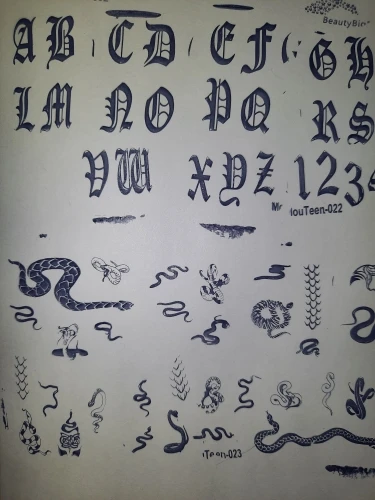 BeautyBi
A B C D E F G H
L M N O P Q R S
V W X Y Z 1 2 3
ouTeen-022
Teen-023